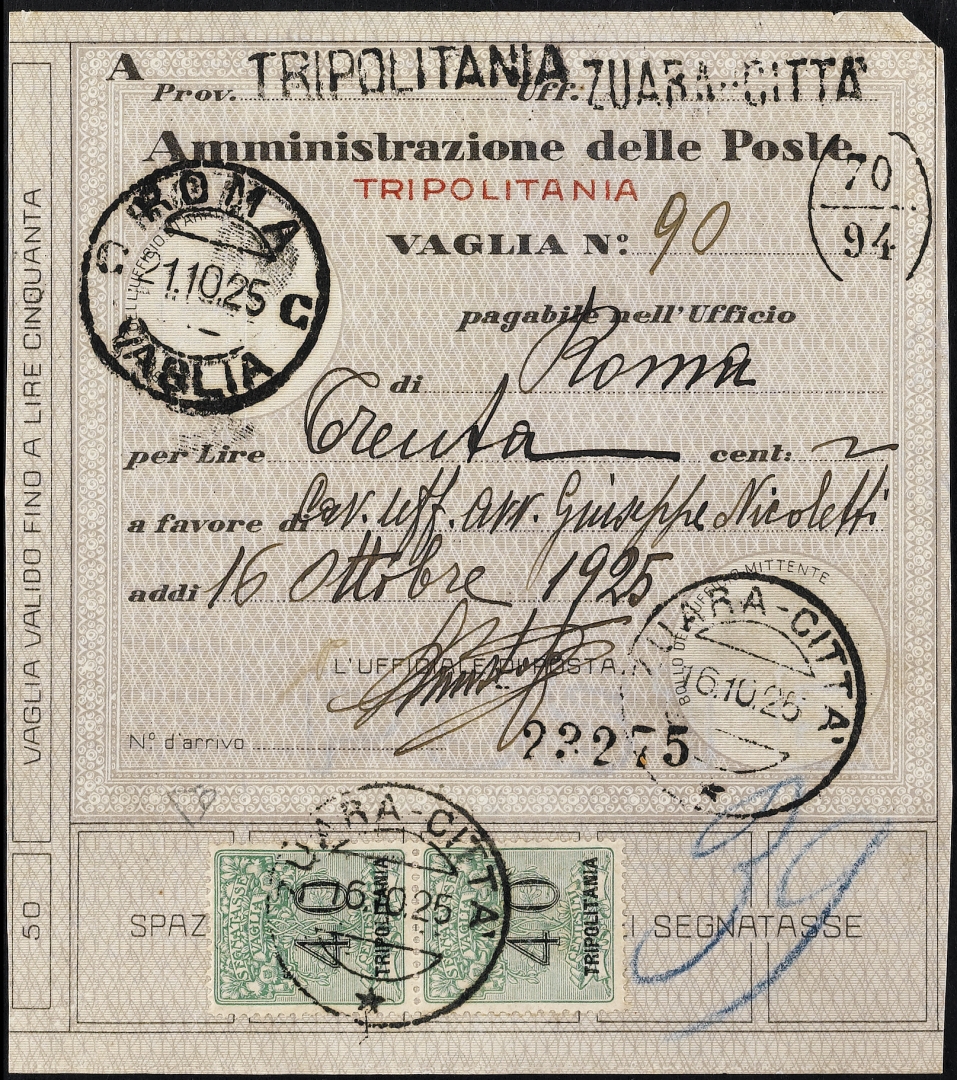 A
Prov. TRIPOLITANIA Uff. ZUARA-CITTA'
Amministrazione delle Poste
TRIPOLITANIA
70
94
VAGLIA N° 90
ROMA
C 1.10.25 C
VAGLIA
pagabile nell'Ufficio
di Roma
per Lire Trenta cent:
a favore di Cav. Uff. Avv. Giuseppe Nicoletti
addi 16 Ottobre 1925
BOLLO DELL'UFFICIO MITTENTE
L'UFFICIALE DI POSTA
ZUARA-CITTA'
16.10.25
N° d'arrivo
23275
VAGLIA VALIDO FINO A LIRE CINQUANTA
50
SPAZ I SEGNATASSE
ZUARA-CITTA'
16.10.25
SEGNATASSE VAGLIA 40 TRIPOLITANIA
SEGNATASSE VAGLIA 40 TRIPOLITANIA
39